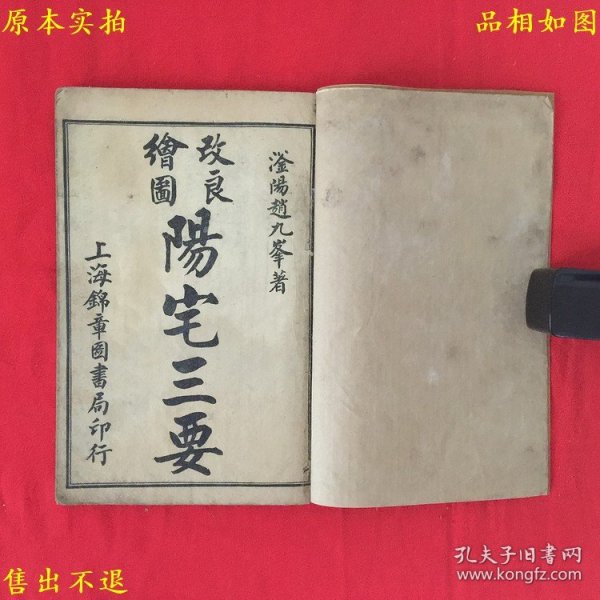 原本实拍
品相如图
滏陽趙九峯著
改良
繪圖
陽宅三要
上海錦章圖書局印行
售出不退
孔夫子旧书网
www.kongfz.com